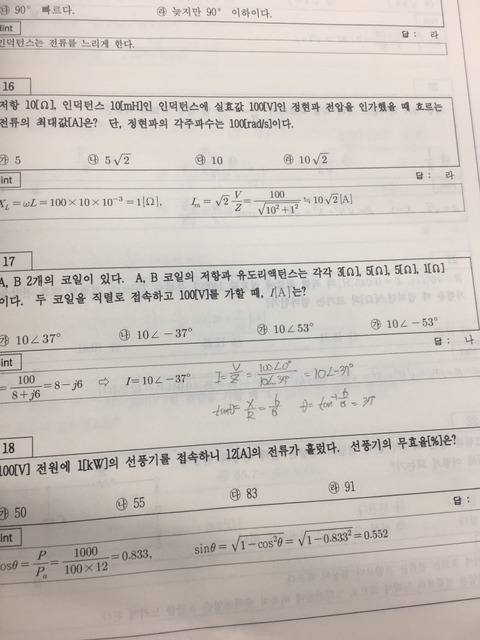 ㉯ 90° 빠르다. ㉱ 늦지만 90° 이하이다.
답 : 라
인덕턴스는 전류를 느리게 한다.
16
저항 10[Ω], 인덕턴스 10[mH]인 인덕턴스에 실효값 100[V]인 정현파 전압을 인가했을 때 흐르는
전류의 최대값[A]은? 단, 정현파의 각주파수는 100[rad/s]이다.
㉮ 5 ㉯ 5√2 ㉰ 10 ㉱ 10√2
답 : 라
int
X_L = ωL = 100×10×10⁻³ = 1[Ω], I_m = √2 V/Z = 100/√(10²+1²) ≒ 10√2[A]
17
A, B 2개의 코일이 있다. A, B 코일의 저항과 유도리액턴스는 각각 3[Ω], 5[Ω], 5[Ω], 1[Ω]
이다. 두 코일을 직렬로 접속하고 100[V]를 가할 때, I[A]는?
㉮ 10∠37° ㉯ 10∠-37° ㉮ 10∠53° ㉮ 10∠-53°
답 : 나
int
= 100/(8+j6) = 8-j6 ⇨ I = 10∠-37° I = V/Z = 100∠0°/10∠37° = 10∠-37°
tanθ = X/R = 6/8 θ = tan⁻¹ 6/8 = 37°
18
100[V] 전원에 1[kW]의 선풍기를 접속하니 12[A]의 전류가 흘렀다. 선풍기의 무효율[%]은?
㉮ 50 ㉯ 55 ㉰ 83 ㉱ 91
답 :
int
cosθ = P/P_a = 1000/(100×12) = 0.833, sinθ = √(1-cos²θ) = √(1-0.833²) = 0.552